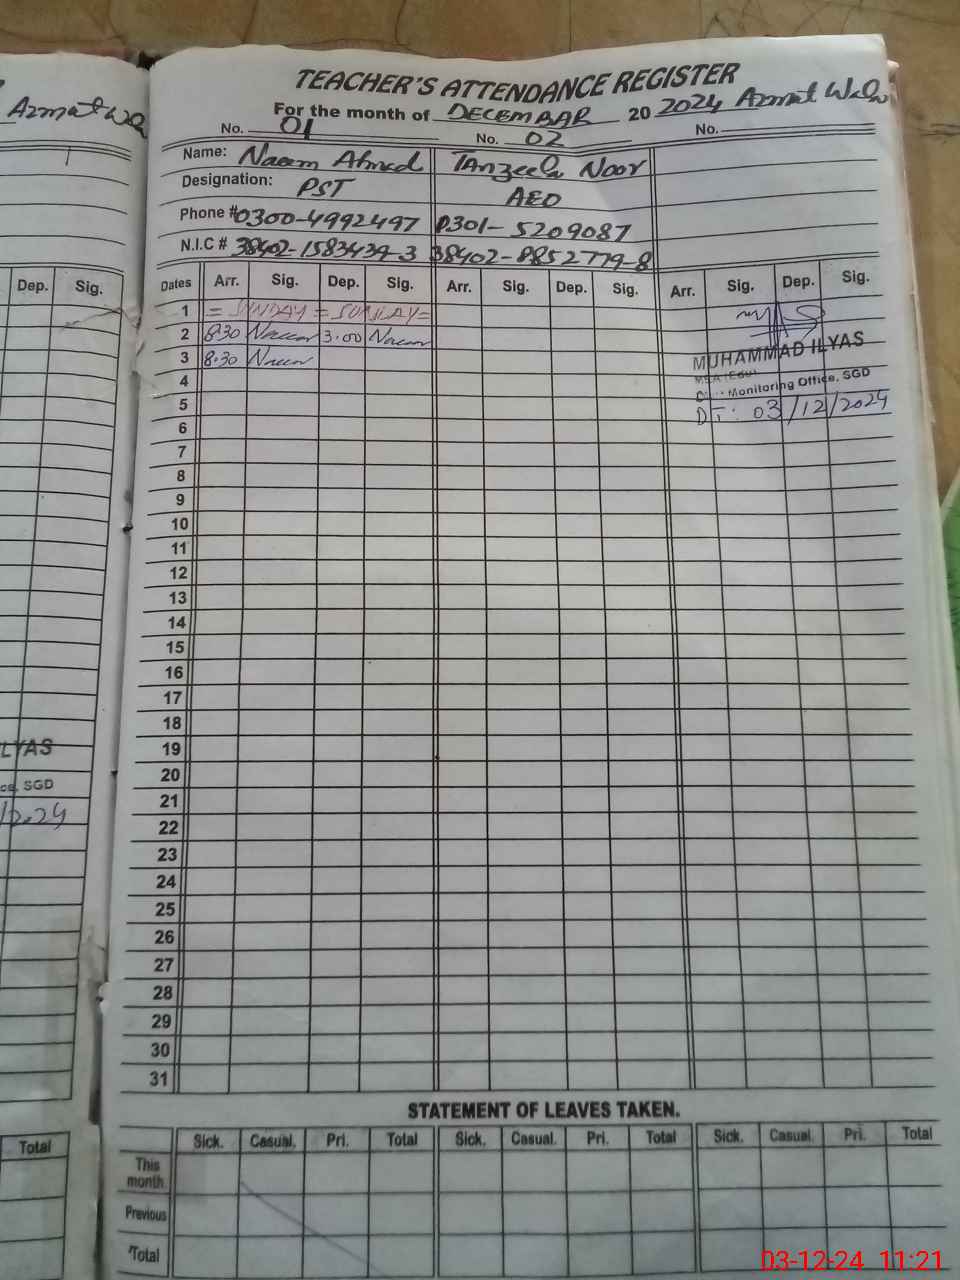 Azmat Wala
TEACHER'S ATTENDANCE REGISTER
For the month of DECEMBAR 20 2024 Azmat Wala
No. 01 No. 02 No.
Name: Naeem Ahmed Tanzeela Noor
Designation: PST AEO
Phone # 0300-4992497 0301-5209087
N.I.C # 38402-1583439-3 38402-8852779-8
Dep. Sig. Dates Arr. Sig. Dep. Sig. Arr. Sig. Dep. Sig. Arr. Sig. Dep. Sig.
1 = SUNDAY = SUNDAY =
2 8:30 Naeem 3:00 Naeem
3 8:30 Naeem
MUHAMMAD ILYAS
MEA (Edu)
Monitoring Office, SGD
DT: 03/12/2024
4
5
6
7
8
9
10
11
12
13
14
15
16
17
18
19
LYAS
20
ce, SGD
21
/2024
22
23
24
25
26
27
28
29
30
31
STATEMENT OF LEAVES TAKEN.
Total Sick. Casual. Pri. Total Sick. Casual. Pri. Total Sick. Casual. Pri. Total
This
month
Previous
Total
03-12-24 11:21